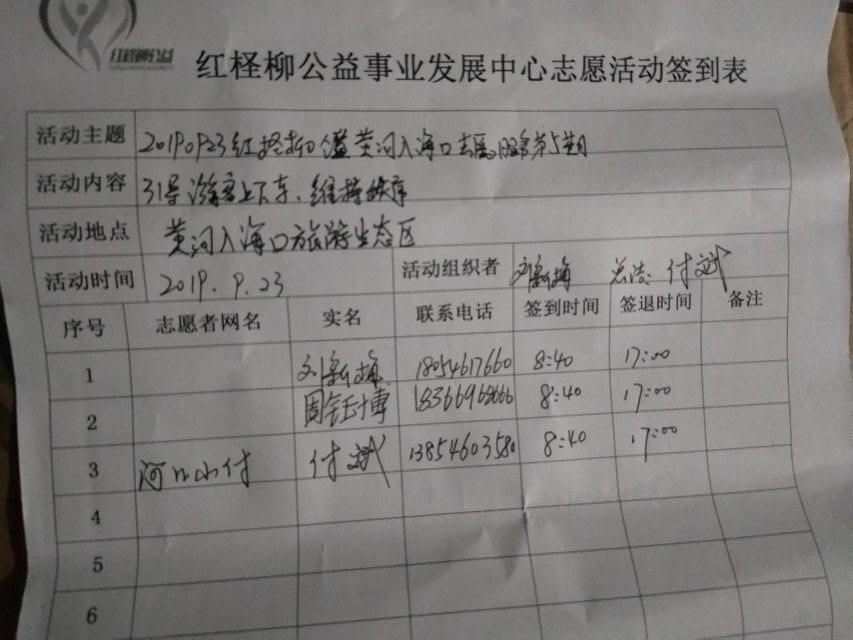 红柽柳公益事业发展中心志愿活动签到表
活动主题 20190923红柽柳公益黄河入海口志愿服务第5期
活动内容 引导游客上下车、维持秩序
活动地点 黄河入海口旅游生态区
活动时间 2019.9.23 活动组织者 刘新梅 付斌
序号 志愿者网名 实名 联系电话 签到时间 签退时间 备注
1 刘新梅 18054617660 8:40 17:00
2 周 8:40 17:00
3 河口小付 付斌 13854603580 8:40 17:00
4
5
6